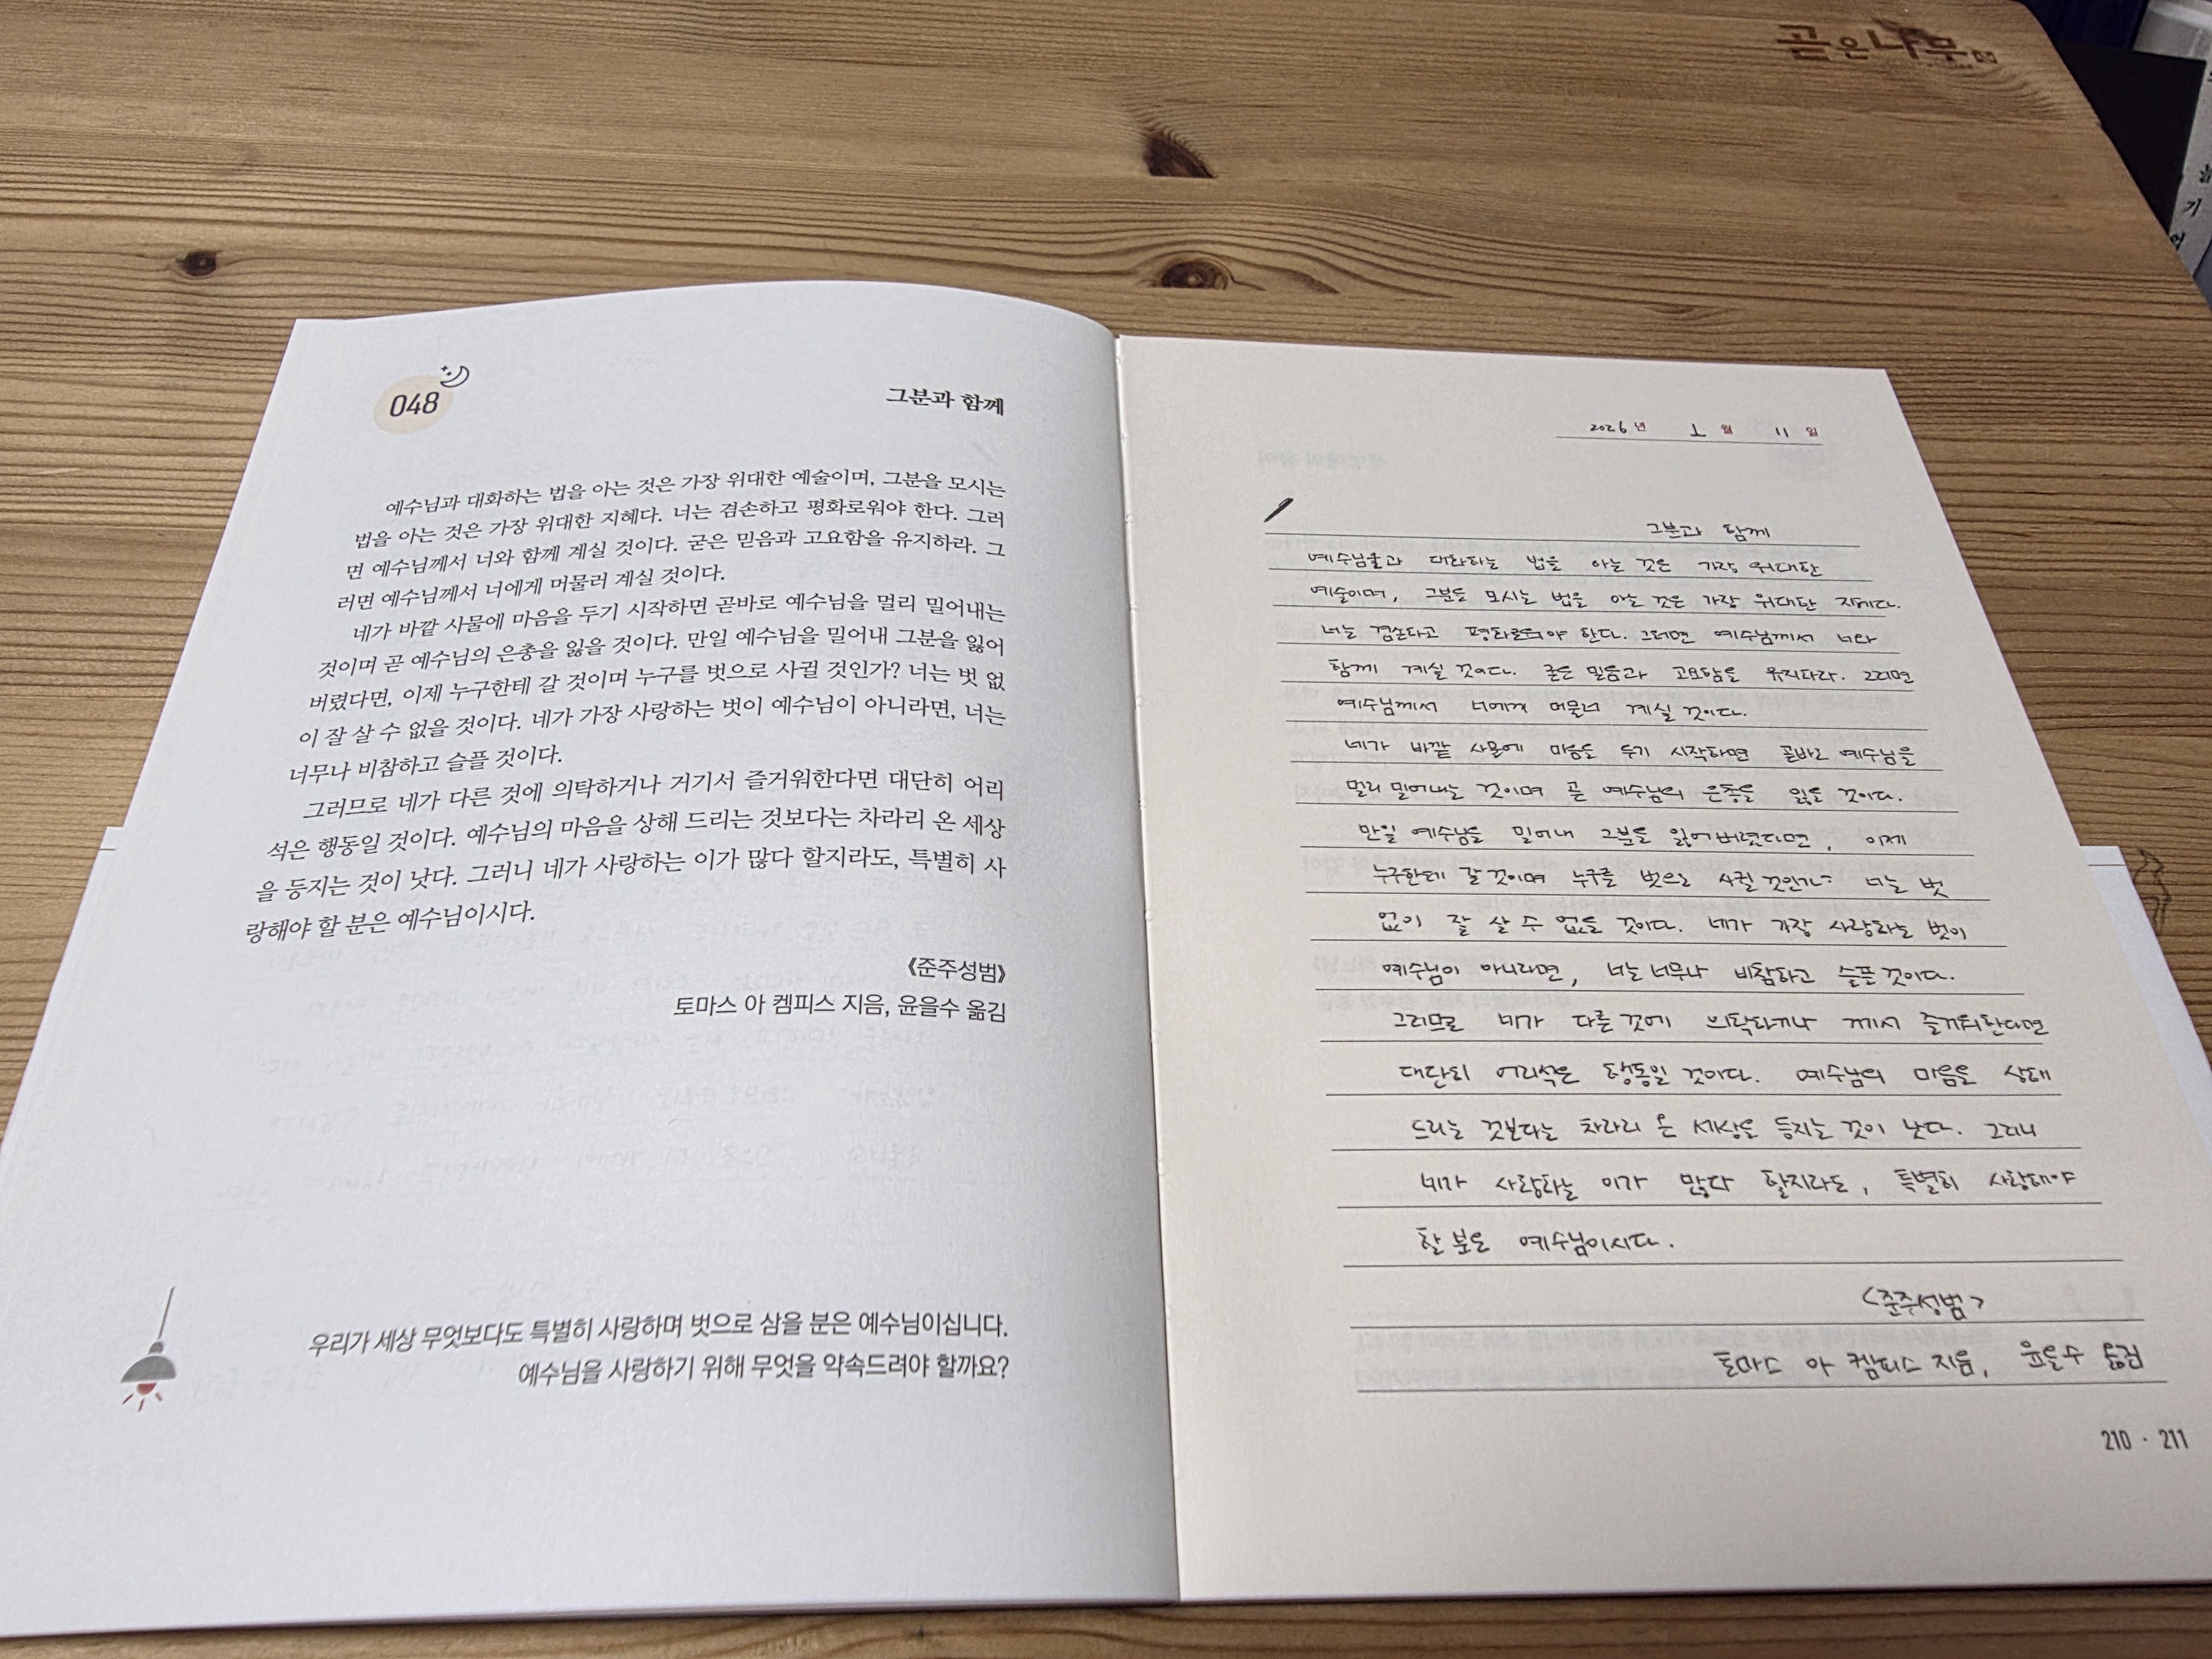 곧은나무
048
그분과 함께
예수님과 대화하는 법을 아는 것은 가장 위대한 예술이며, 그분을 모시는
법을 아는 것은 가장 위대한 지혜다. 너는 겸손하고 평화로워야 한다. 그러
면 예수님께서 너와 함께 계실 것이다. 굳은 믿음과 고요함을 유지하라. 그
러면 예수님께서 너에게 머물러 계실 것이다.
네가 바깥 사물에 마음을 두기 시작하면 곧바로 예수님을 멀리 밀어내는
것이며 곧 예수님의 은총을 잃을 것이다. 만일 예수님을 밀어내 그분을 잃어
버렸다면, 이제 누구한테 갈 것이며 누구를 벗으로 사귈 것인가? 너는 벗 없
이 잘 살 수 없을 것이다. 네가 가장 사랑하는 벗이 예수님이 아니라면, 너는
너무나 비참하고 슬플 것이다.
그러므로 네가 다른 것에 의탁하거나 거기서 즐거워한다면 대단히 어리
석은 행동일 것이다. 예수님의 마음을 상해 드리는 것보다는 차라리 온 세상
을 등지는 것이 낫다. 그러니 네가 사랑하는 이가 많다 할지라도, 특별히 사
랑해야 할 분은 예수님이시다.
《준주성범》
토마스 아 켐피스 지음, 윤을수 옮김
우리가 세상 무엇보다도 특별히 사랑하며 벗으로 삼을 분은 예수님이십니다.
예수님을 사랑하기 위해 무엇을 약속드려야 할까요?
2026년 1월 11일
그분과 함께
대화하는 법을 아는 것은 가장 위대한
예술이며, 그분을 모시는 법을 아는 것은 가장 위대한 지혜다.
너는 겸손하고 평화로워야 한다. 그러면 예수님께서 너와
함께 계실 것이다. 굳은 믿음과 고요함을 유지하라. 그러면
예수님께서 너에게 머물러 계실 것이다.
네가 바깥 사물에 마음을 두기 시작하면 곧바로 예수님을
멀리 밀어내는 것이며 곧 예수님의 은총을 잃을 것이다.
만일 예수님을 밀어내 그분을 잃어버렸다면, 이제
누구한테 갈 것이며 누구를 벗으로 사귈 것인가? 너는 벗
없이 잘 살 수 없을 것이다. 네가 가장 사랑하는 벗이
예수님이 아니라면, 너는 너무나 비참하고 슬플 것이다.
그러므로 네가 다른 것에 의탁하거나 께서 즐거워한다면
대단히 어리석은 행동일 것이다. 예수님의 마음을 상해
드리는 것보다는 차라리 온 세상을 등지는 것이 낫다. 그러니
네가 사랑하는 이가 많다 할지라도, 특별히 사랑해야
할 분은 예수님이시다.
<준주성범>
토마스 아 켐피스 지음, 윤을수 옮김
210 · 211